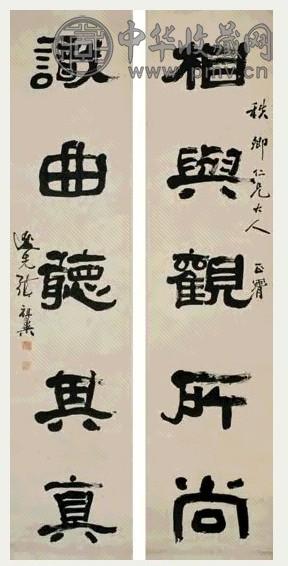 中华收藏网
www.pmv.cn
秩卿仁兄大人正
相與觀所尚
識曲聽其真
逖先張祖翼